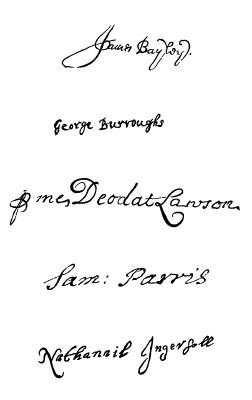 James Bayley.
George Burroughs
p me, Deodat Lawson.
Sam: Parris
Nathanail Ingersoll